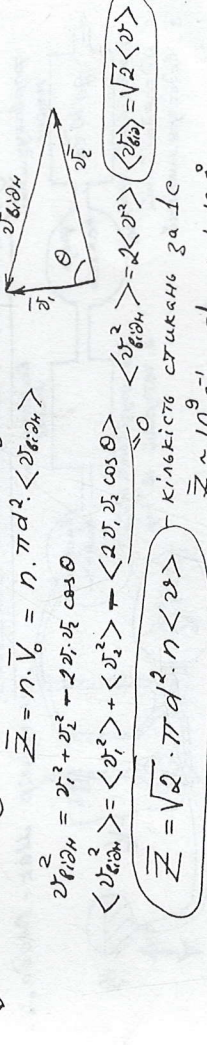 Z̄ = n · V̄₀ = n · πd² · <v_відн>
v²_відн = v₁² + v₂² - 2v₁v₂ cosθ
<v²_відн> = <v₁²> + <v₂²> - <2v₁v₂ cosθ> = 0
<v²_відн> = 2<v²> <v_відн> = √2 <v>
Z̄ = √2 · πd² · n <v> - кількість стикань за 1с
v̄₁ v_відн θ v̄₂